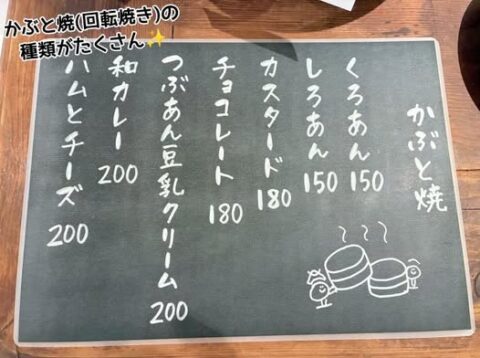 かぶと焼(回転焼き)の
種類がたくさん✨
かぶと焼
くろあん 150
しろあん 150
カスタード 180
チョコレート 180
つぶあん豆乳クリーム 200
和カレー 200
ハムとチーズ 200